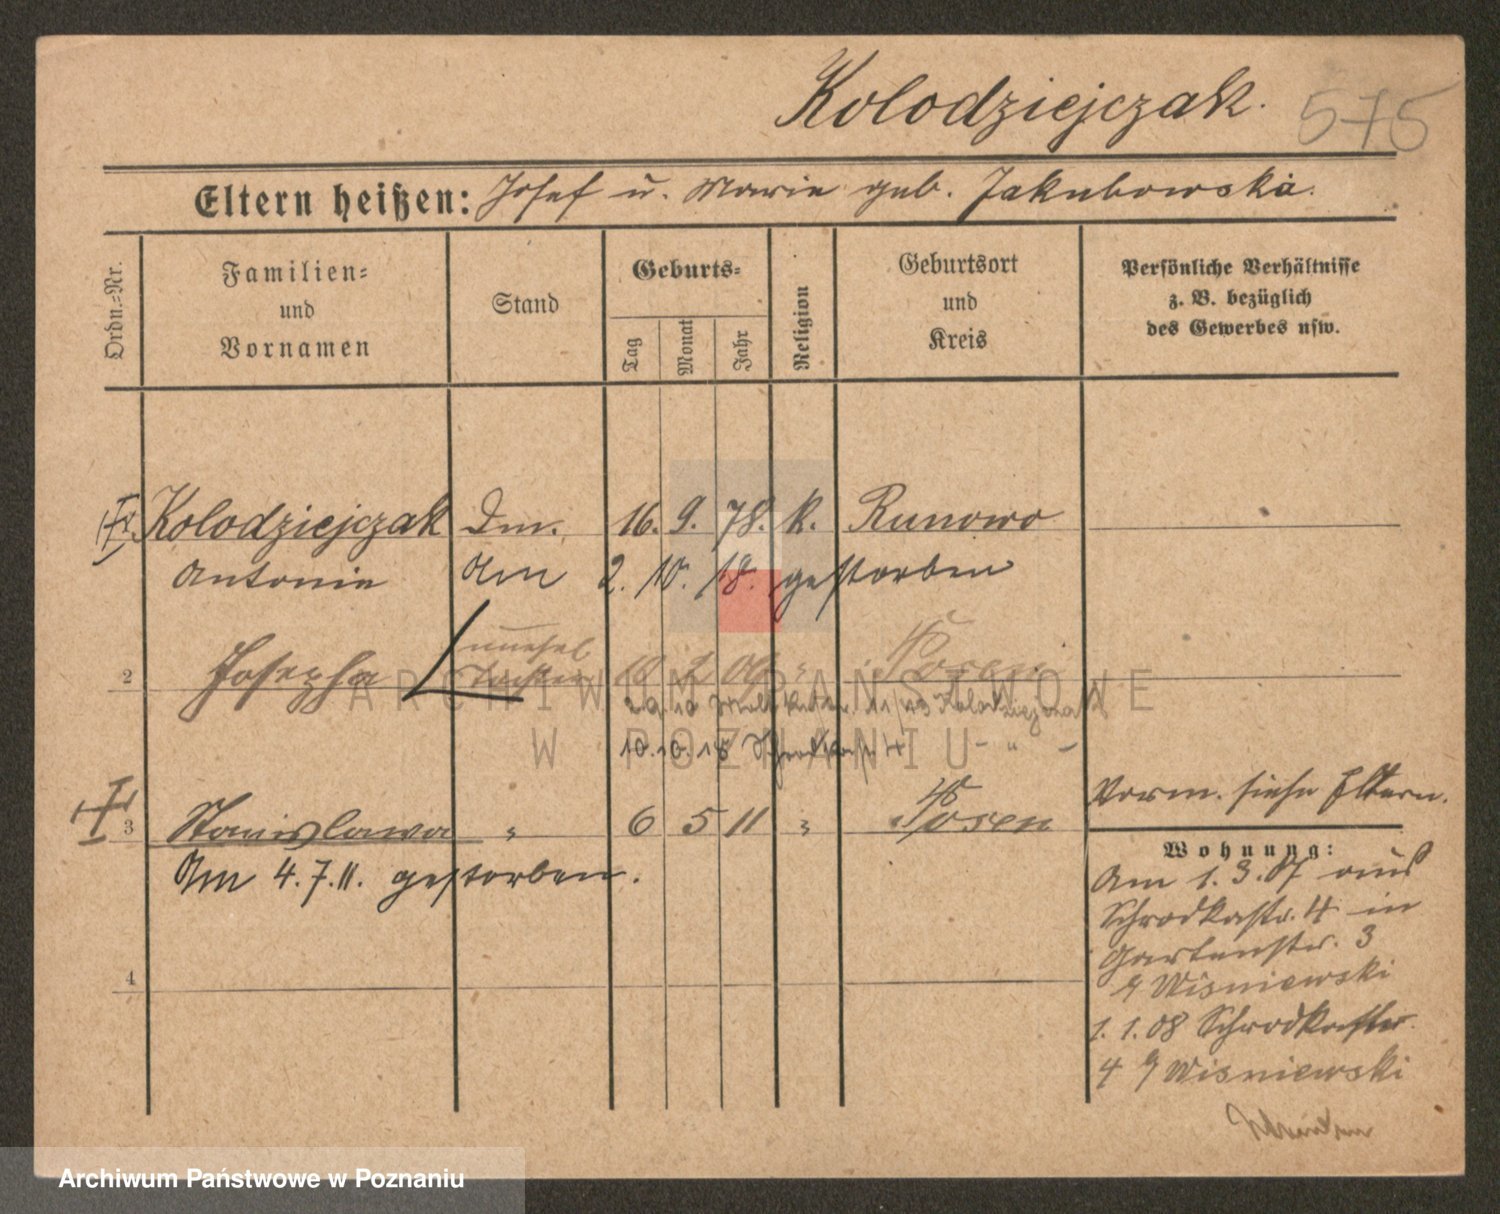 Kolodziejczak. 575
Eltern heißen: Josef u. Marie geb. Jakubowska.
Ordn.-Nr.
Familien-
und
Vornamen
Stand
Geburts-
Tag Monat Jahr
Religion
Geburtsort
und
Kreis
Persönliche Verhältnisse
z. B. bezüglich
des Gewerbes usw.
Kolodziejczak 16. 9. 78. k. Runowo
Antonie Am 2. 10. 18. gestorben
2 Josepha unehel Tochter Posen
10.10.18 Schrodkastr 4 - " -
3 Stanislawa " 6 5 11 " Posen
Am 4.7.11. gestorben.
4
Vorm. siehe Eltern.
Wohnung:
Am 1.3.07 aus
Schrodkastr. 4 in
Gartenstr. 3
Wisniewski
1.1.08 Schrodkastr.
4 Wisniewski
ARCHIWUM PAŃSTWOWE
W POZNANIU
Archiwum Państwowe w Poznaniu